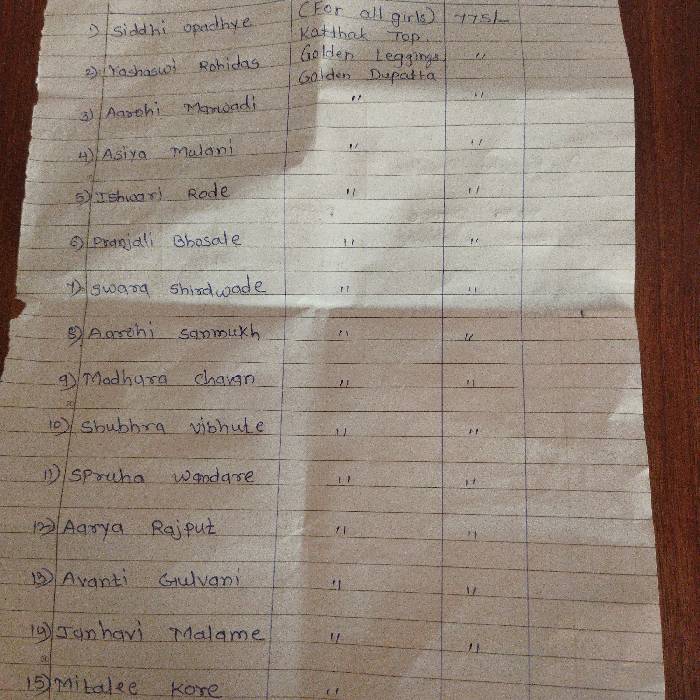 1) Siddhi Opadhye (For all girls) 775/-
Katthak Top.
2) Yashaswi Rohidas Golden Leggings "
Golden Dupatta
3) Aarohi Marwadi " "
4) Asiya Mulani " "
5) Ishwari Rode " "
6) Pranjali Bhosale " "
7) Swara Shirdwade " "
8) Aarohi Sanmukh " "
9) Madhura Chavan " "
10) Shubhra Vibhute " "
11) Spruha Wandare " "
12) Aarya Rajput " "
13) Avanti Gulvani " "
14) Janhavi Malame " "
15) Mitalee Kore "